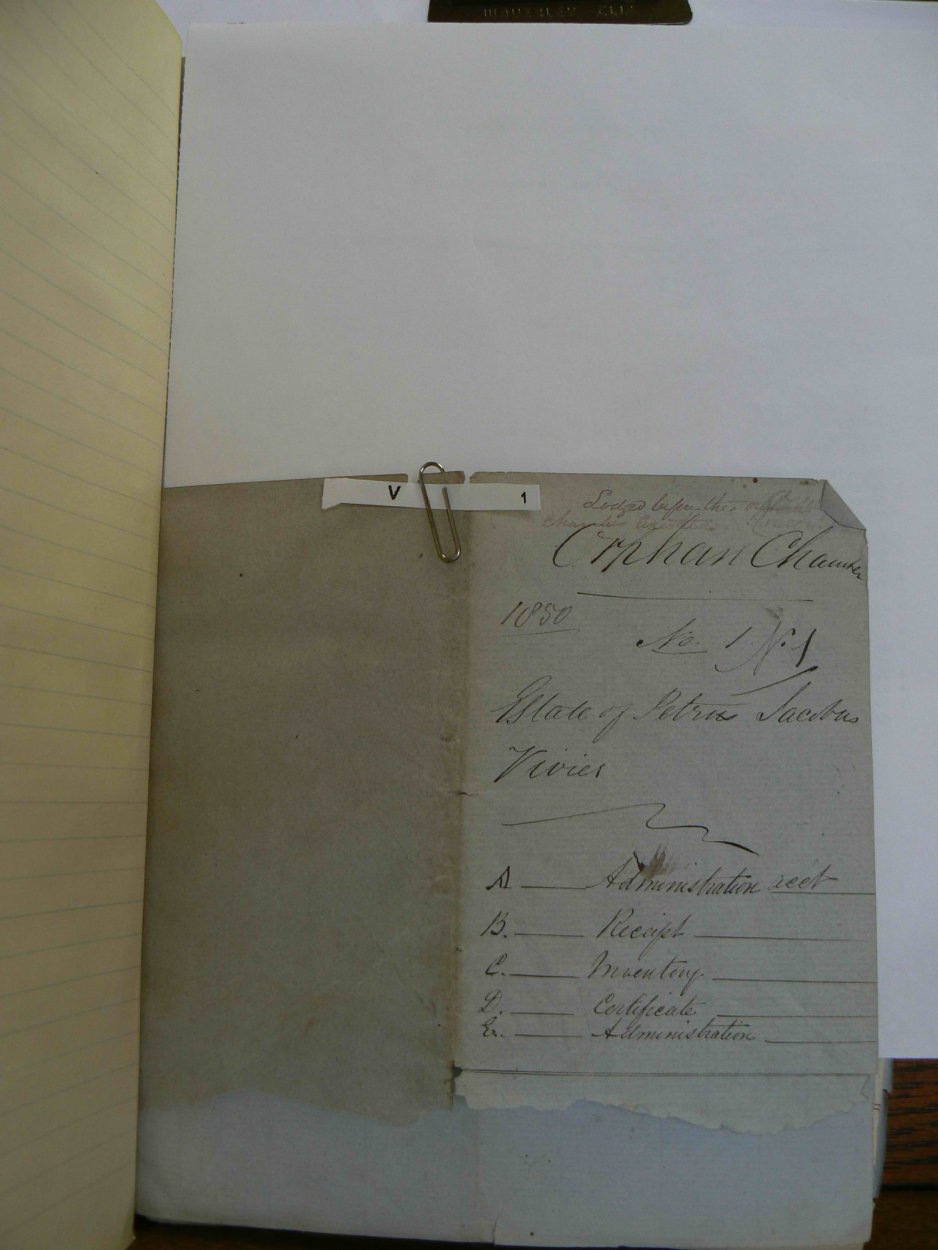 V 1
Lodged before the orphan
chamber
Orphan Chamber
1850
No. 1 No. 1
Estate of Petrus Jacobus
Vivier
A. Administration acct
B. Receipt
C. Inventory
D. Certificate
E. Administration